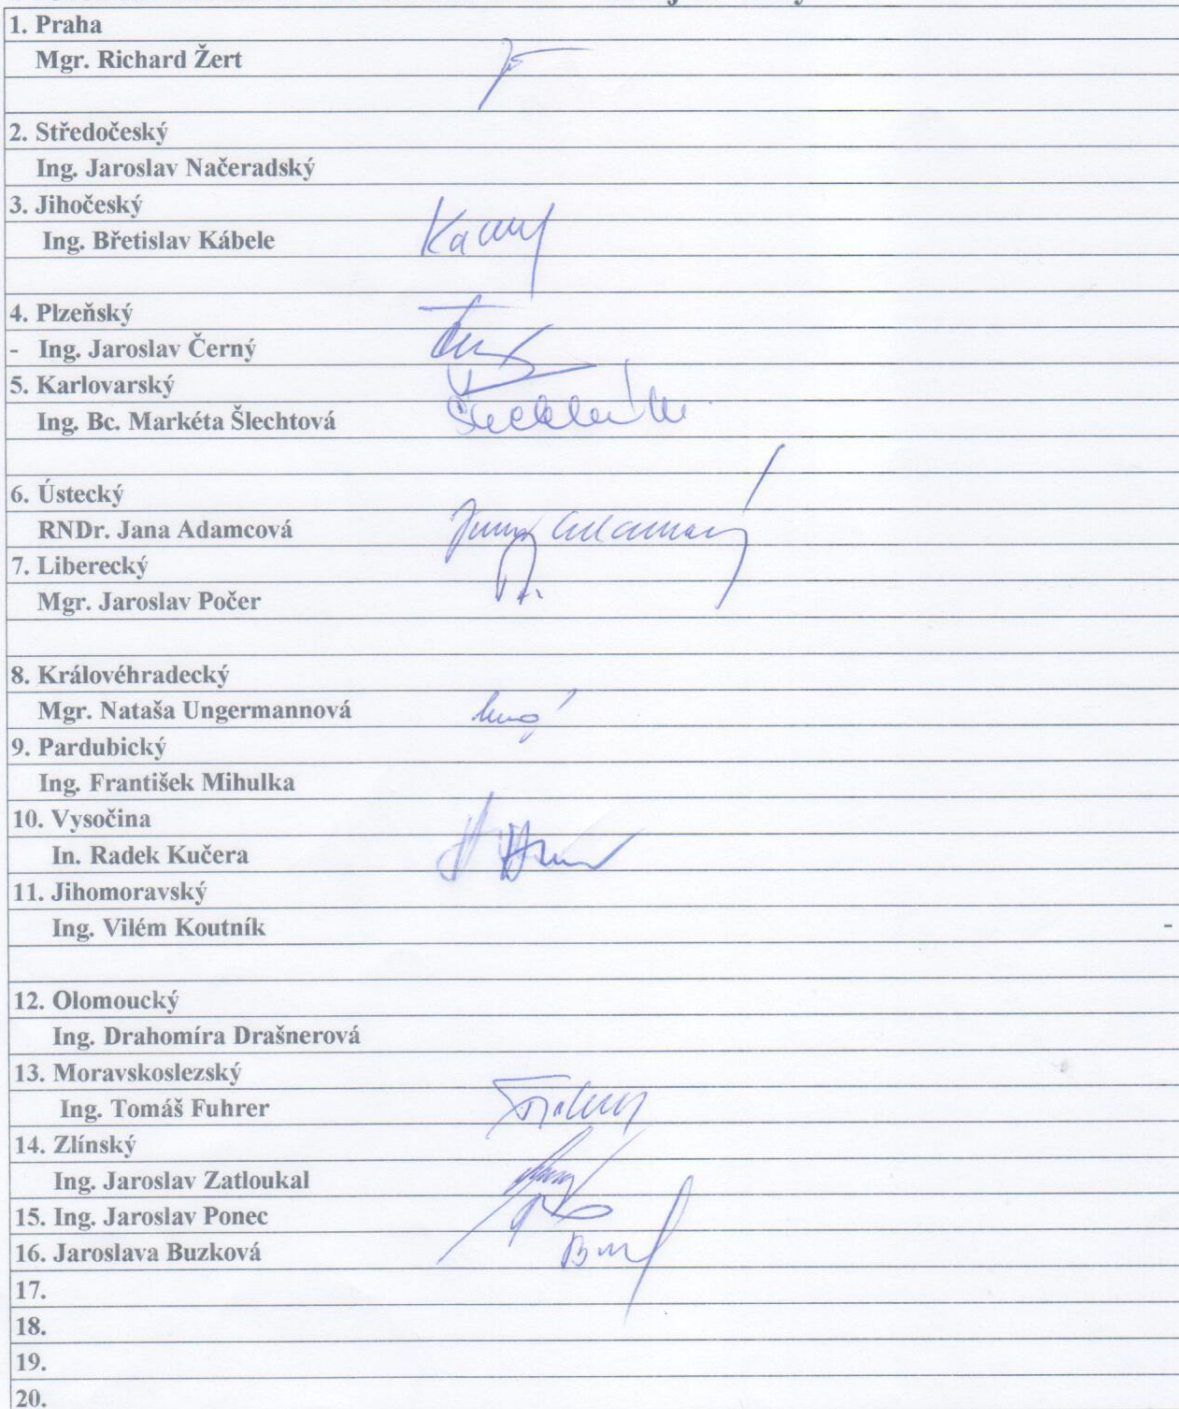 1. Praha
Mgr. Richard Žert
2. Středočeský
Ing. Jaroslav Načeradský
3. Jihočeský
Ing. Břetislav Kábele
4. Plzeňský
- Ing. Jaroslav Černý
5. Karlovarský
Ing. Bc. Markéta Šlechtová
6. Ústecký
RNDr. Jana Adamcová
7. Liberecký
Mgr. Jaroslav Počer
8. Královéhradecký
Mgr. Nataša Ungermannová
9. Pardubický
Ing. František Mihulka
10. Vysočina
In. Radek Kučera
11. Jihomoravský
Ing. Vilém Koutník -
12. Olomoucký
Ing. Drahomíra Drašnerová
13. Moravskoslezský
Ing. Tomáš Fuhrer
14. Zlínský
Ing. Jaroslav Zatloukal
15. Ing. Jaroslav Ponec
16. Jaroslava Buzková
17.
18.
19.
20.